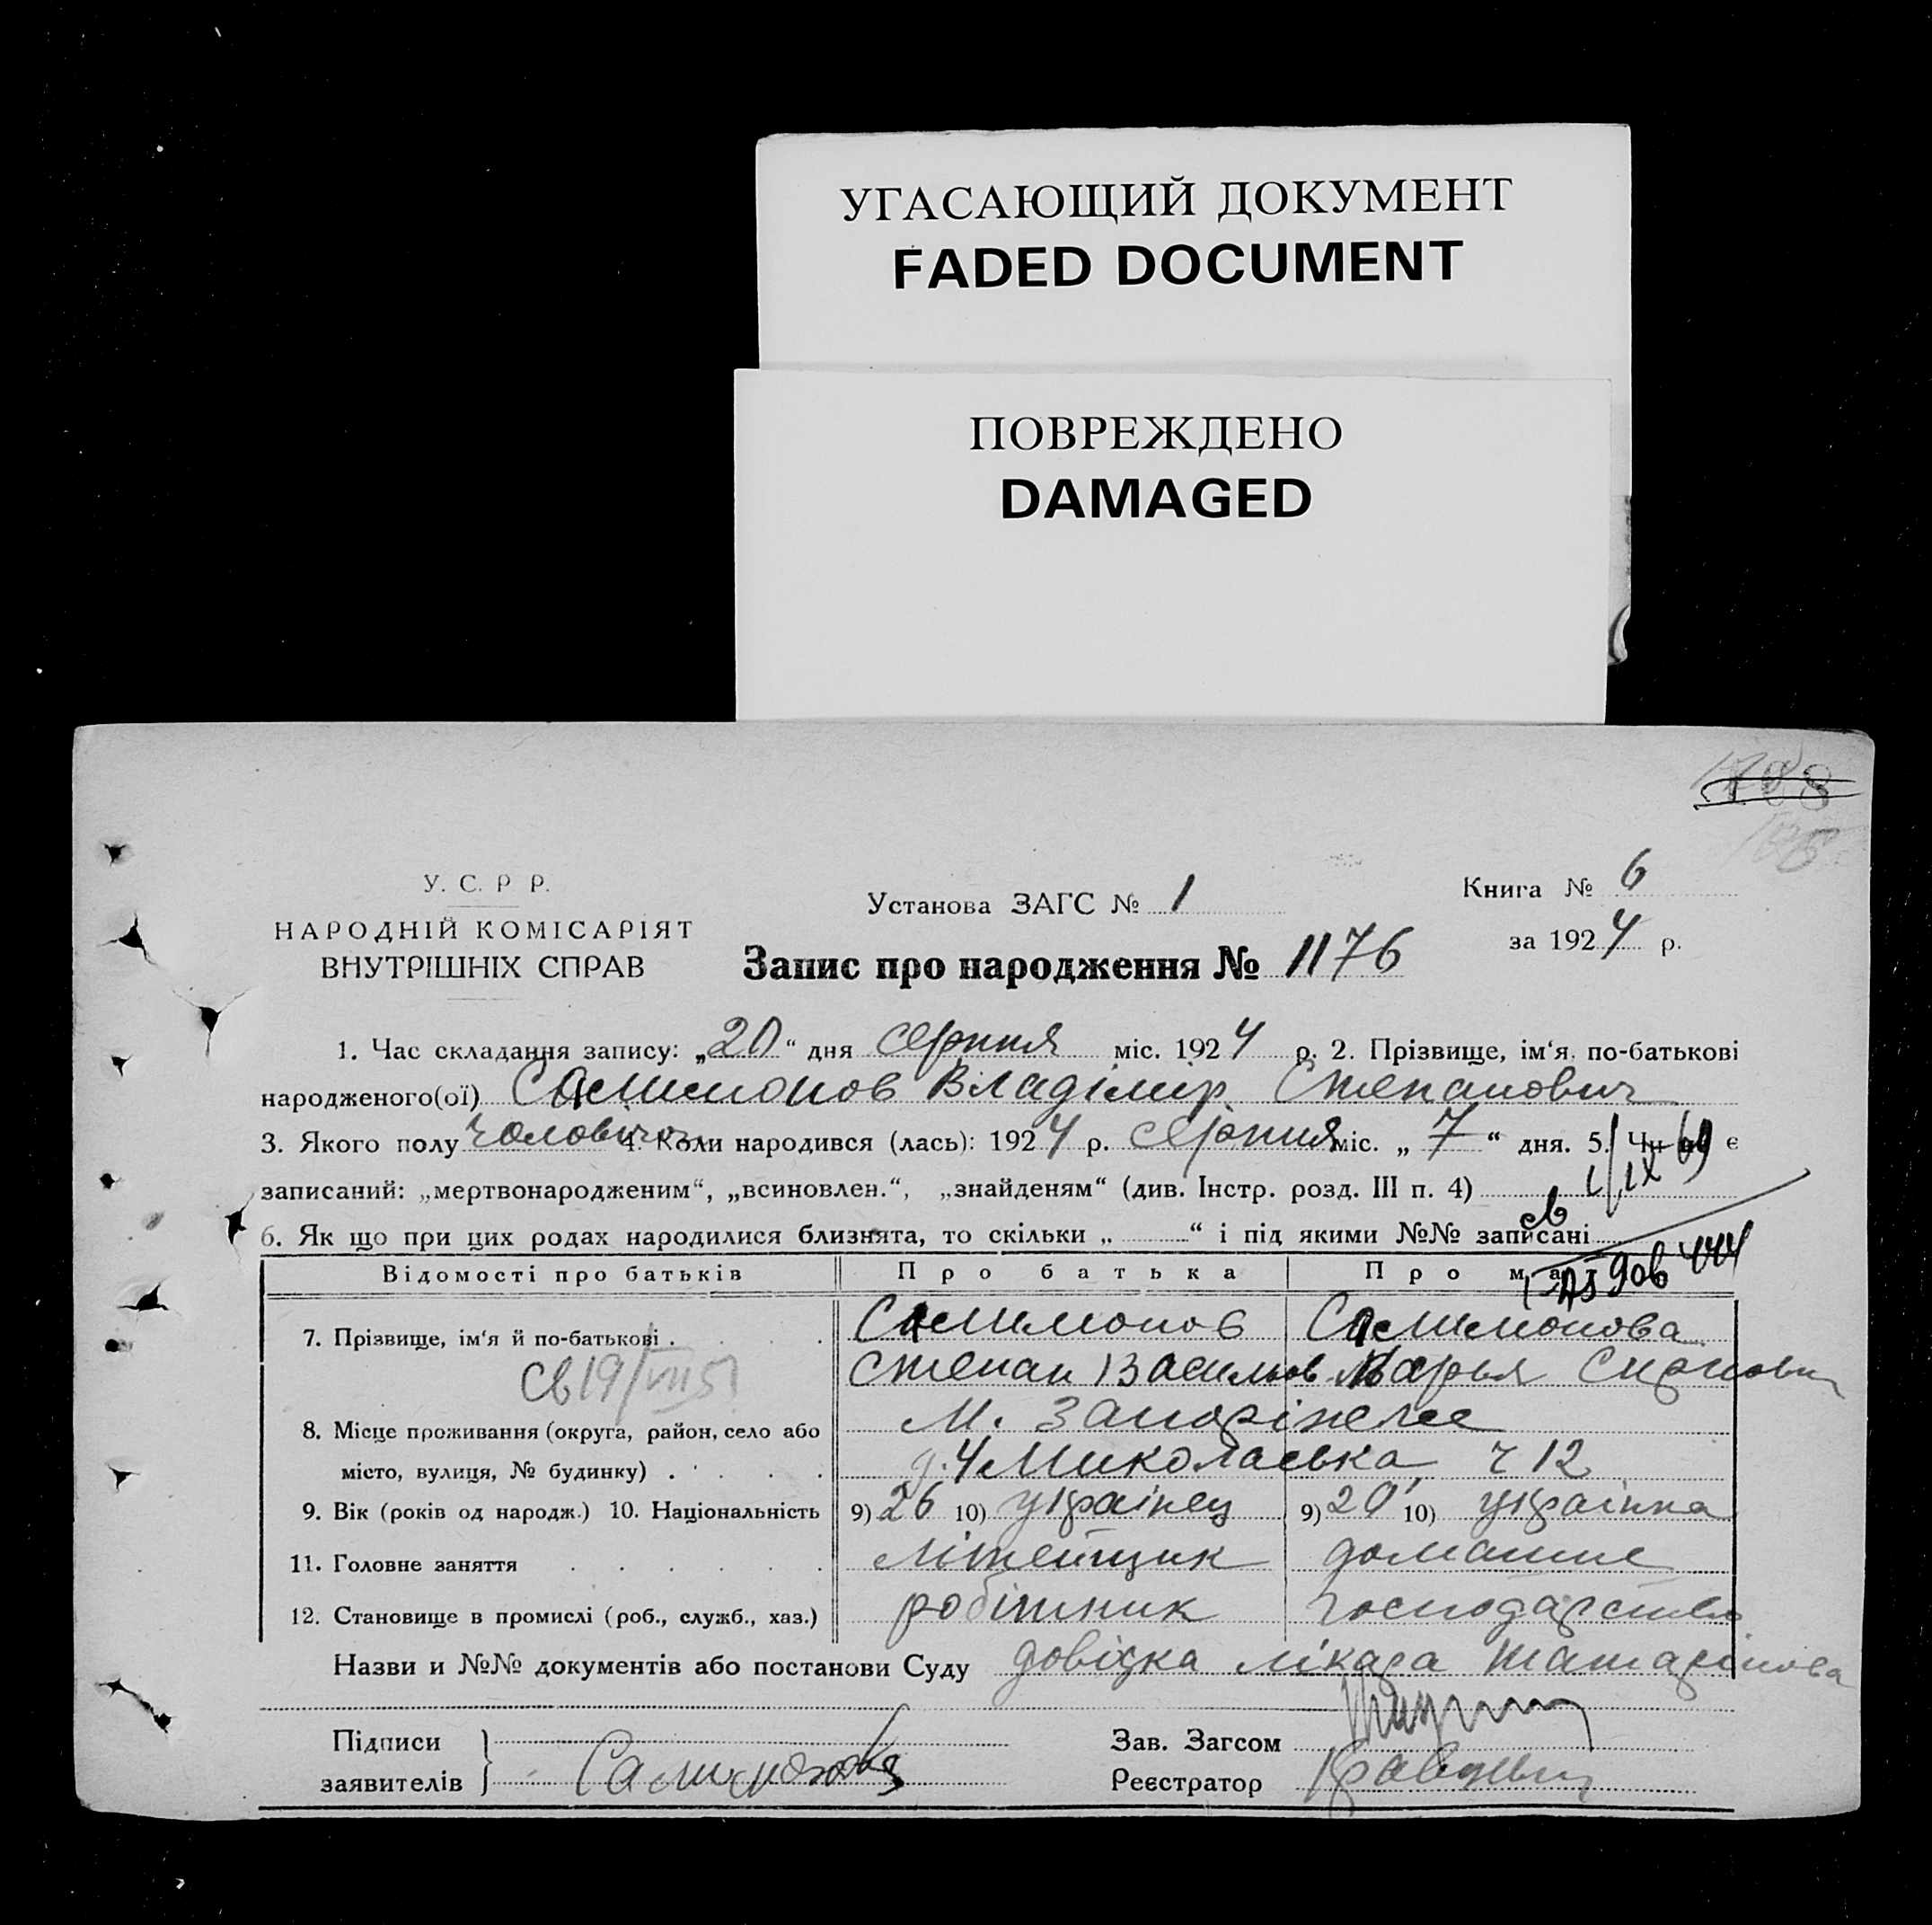 УГАСАЮЩИЙ ДОКУМЕНТ
FADED DOCUMENT
ПОВРЕЖДЕНО
DAMAGED
У. С. Р Р.
НАРОДНІЙ КОМІСАРІЯТ
ВНУТРІШНІХ СПРАВ
Установа ЗАГС № 1
Книга № 6
за 1924 р.
Запис про народження № 1176
1. Час складання запису: „20“ дня серпня міс. 1924 р. 2. Прізвище, ім‘я, по-батькові
народженого(ої) Саммонов Владімір Степанович
3. Якого полу чоловічч 4. Коли народився (лась): 1924 р. серпня міс. „7“ дня. 5. Чи не є
записаний: „мертвонародженим“, „всиновлен.“, „знайденям“ (див. Інстр. розд. III п. 4)
6. Як що при цих родах народилися близнята, то скільки „ “ і під якими №№ записані
Відомості про батьків Про батька Про ма
7. Прізвище, ім‘я й по-батькові Степан Васильов Марья
св 19/VII 5
8. Місце проживання (округа, район, село або м. Запоріжже
місто, вулиця, № будинку) Миколаєвка ч 12
9. Вік (років од народж.) 10. Національність 9) 26 10) українец 9) 20 10) українка
11. Головне заняття літейщик домашнє
12. Становище в промислі (роб., служб., хаз.) робітник господарство
Назви и №№ документів або постанови Суду довідка лікара Татарінова
Підписи
заявителів
Зав. Загсом
Реєстратор